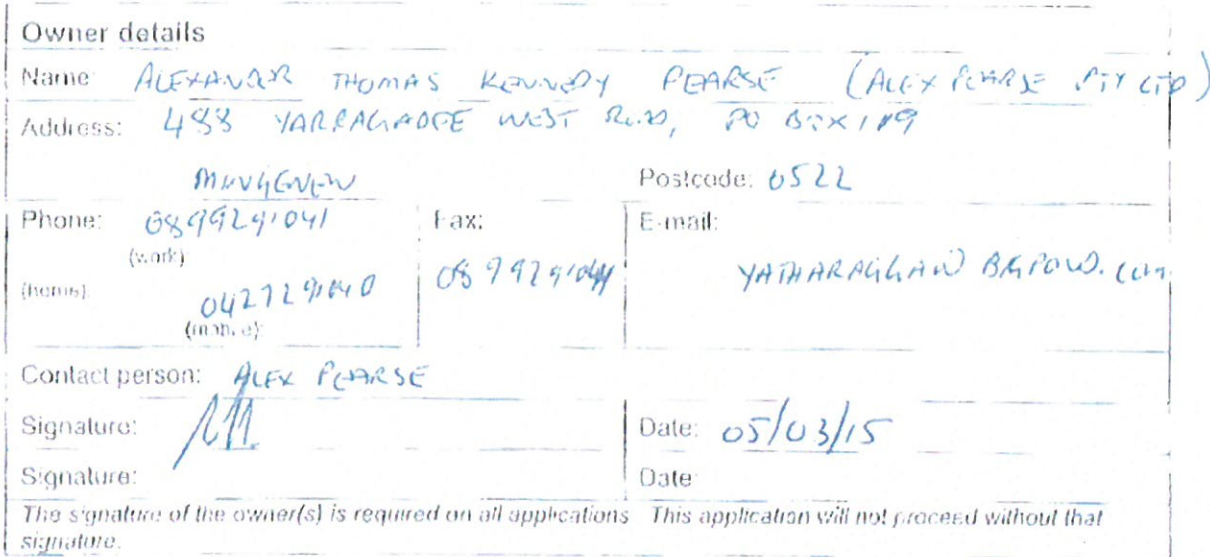 Owner details
Name: ALEXANDER THOMAS KENNEDY PEARSE (ALEX PEARSE PTY LTD)
Address: 488 YARRAGADEE WEST ROAD, PO BOX 119
MINGENEW Postcode: 6522
Phone: 0899291041 Fax: E-mail:
(work)
(home) 0427291040 0899291044 YATHARAGGAN
(mobile):
Contact person: ALEX PEARSE
Signature: Date: 05/03/15
Signature: Date:
The signature of the owner(s) is required on all applications This application will not proceed without that
signature.